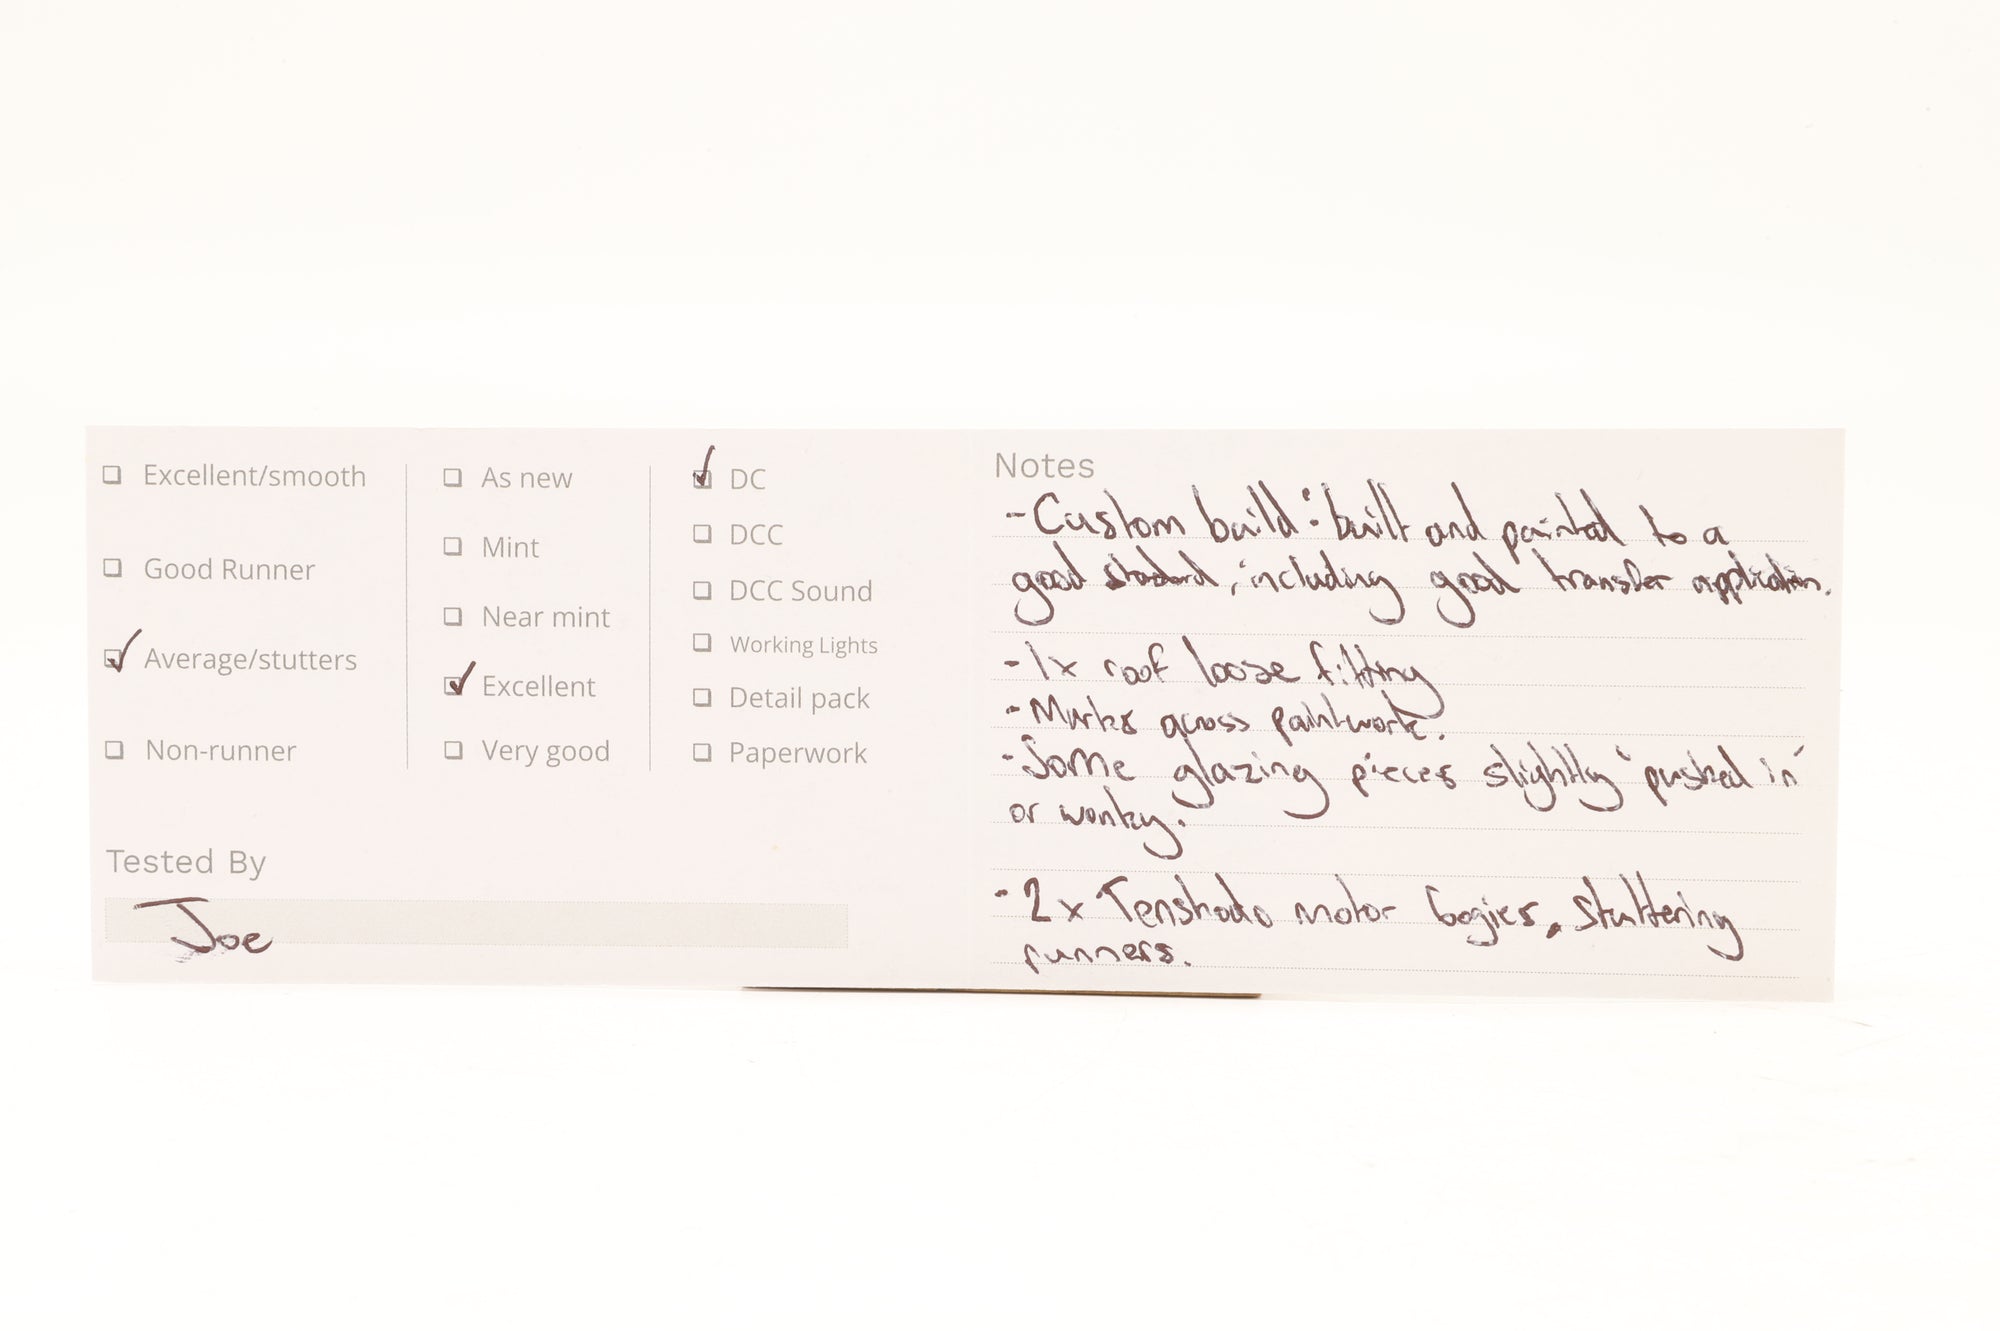 Excellent/smooth
Good Runner
Average/stutters
Non-runner
As new
Mint
Near mint
Excellent
Very good
DC
DCC
DCC Sound
Working Lights
Detail pack
Paperwork
Tested By
Joe
Notes
- Custom build: built and painted to a
good standard, including good transfer application.
- 1x roof loose fitting
- Marks across paintwork.
- Some glazing pieces slightly 'pushed in'
or wonky.
- 2x Tenshodo motor bogies, stuttering
runners.